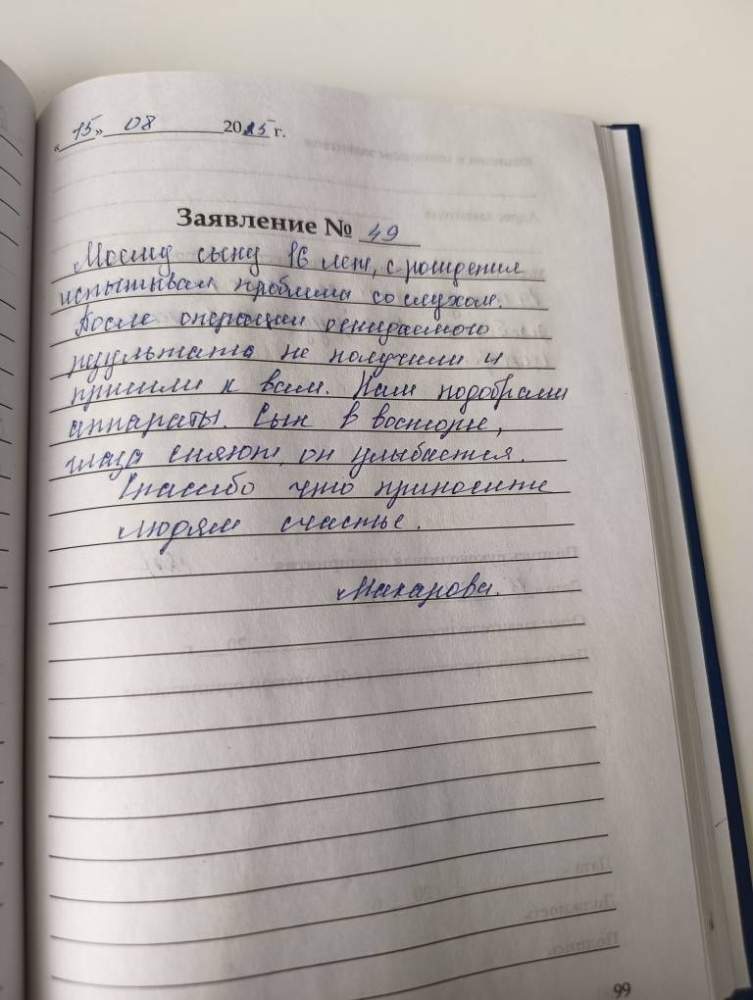 «15» 08 2025 г.
Заявление № 49
Моему сыну 16 лет, с рождения
испытывал проблемы со слухом.
После операции ожидаемого
результата не получили и
пришли к вам. Нам подобрали
аппараты. Сын в восторге,
глаза сияют, он улыбается.
Спасибо что приносите
людям счастье.
Макарова.
99